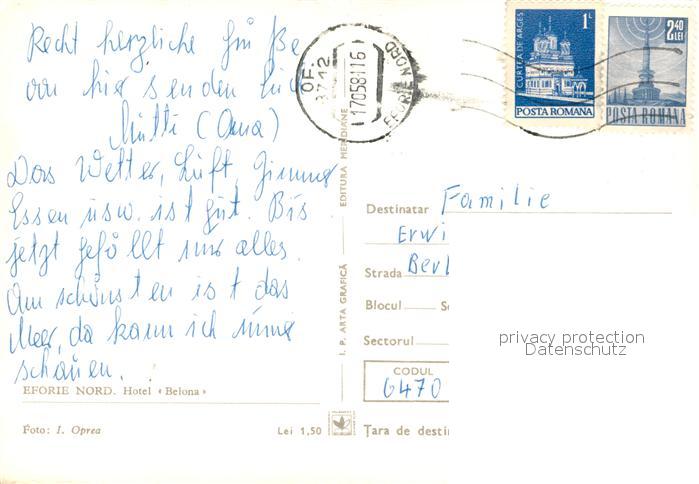 Recht herzliche Grüße
von hier senden Euch
Mutti (Oma)
Das Wetter, Luft, Zimmer
Essen usw. ist gut. Bis
jetzt gefällt mir alles.
Am schönsten ist das
Meer, da kann ich immer
schauen.
EFORIE NORD. Hotel «Belona»
Foto: I. Oprea
Lei 1,50
I. P. ARTA GRAFICĂ
EDITURA MERIDIANE
OF.
8712
17058116
EFORIE NORD
CURTEA DE ARGES
1L
POSTA ROMANA
2,40
LEI
POSTA ROMANA
Destinatar Familie
Erwi
Strada Berl
Blocul
Sectorul
CODUL
6470
Țara de desti
privacy protection
Datenschutz